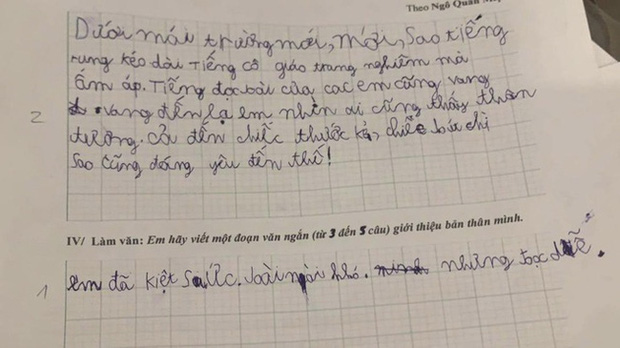 Theo Ngô Quân
Dưới mái trường mới, mới, sao tiếng
rung kéo dài Tiếng cô giáo trang nghiêm mà
ấm áp. Tiếng đọc bài của các em cũng vang
vang đến lạ em nhìn ai cũng thấy thân
2
thương. Cả đến chiếc thước kẻ, chiếc bút chì
sao cũng đáng yêu đến thế!
IV/ Làm văn: Em hãy viết một đoạn văn ngắn (từ 3 đến 5 câu) giới thiệu bản thân mình.
1 em đã kiệt sức. bài này khó. nhưng đọc dễ.